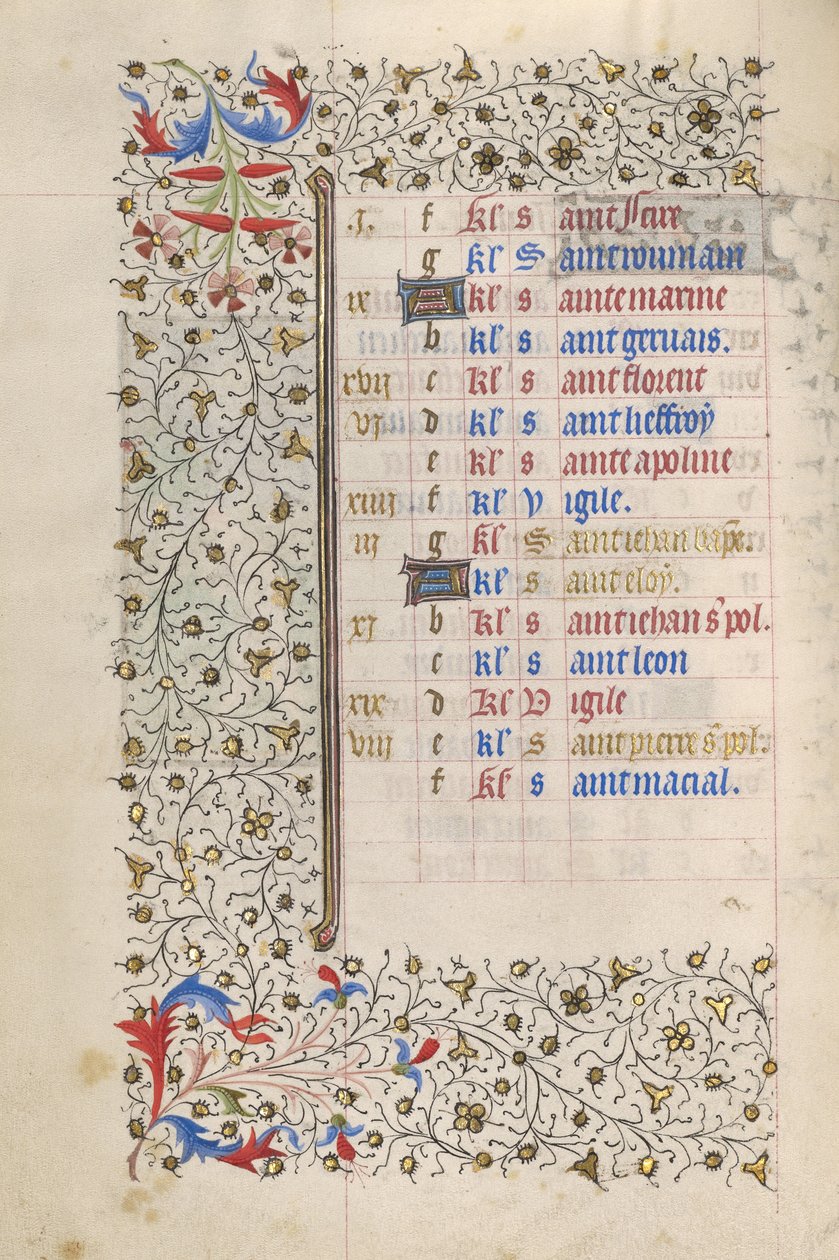 .J. f kl' s aint cire
g kl' S aint roumain
ix A kl' s ainte marine
b kl' s aint geruais.
xvij c kl' s aint florent
vj d kl' s aint lieffroy
e kl' s ainte apoline
xiiij f kl' V igile.
iij g kl' S aint iehan bap̃e.
A kl' s aint eloy.
xj b kl' s aint iehan s̃ pol.
c kl' s aint leon
xix d kl' V igile
viij e kl' S aint pierre s̃ pol.
f kl' s aint macial.